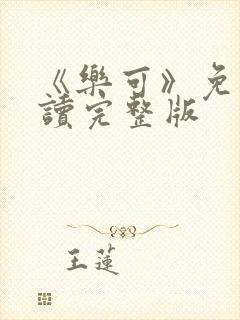 《樂可》免
讀完整版
王蓮